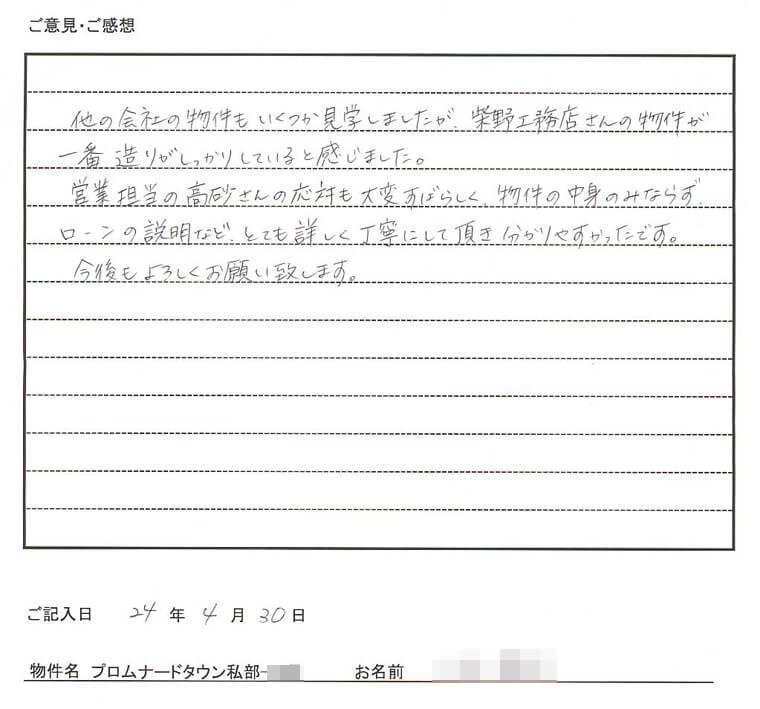 ご意見・ご感想
他の会社の物件もいくつか見学しましたが、栄野工務店さんの物件が
一番造りがしっかりしていると感じました。
営業担当の高砂さんの応対も大変すばらしく、物件の中身のみならず、
ローンの説明など、とても詳しく丁寧にして頂き分かりやすかったです。
今後もよろしくお願い致します。
ご記入日 24 年 4 月 30 日
物件名 プロムナードタウン私部 お名前